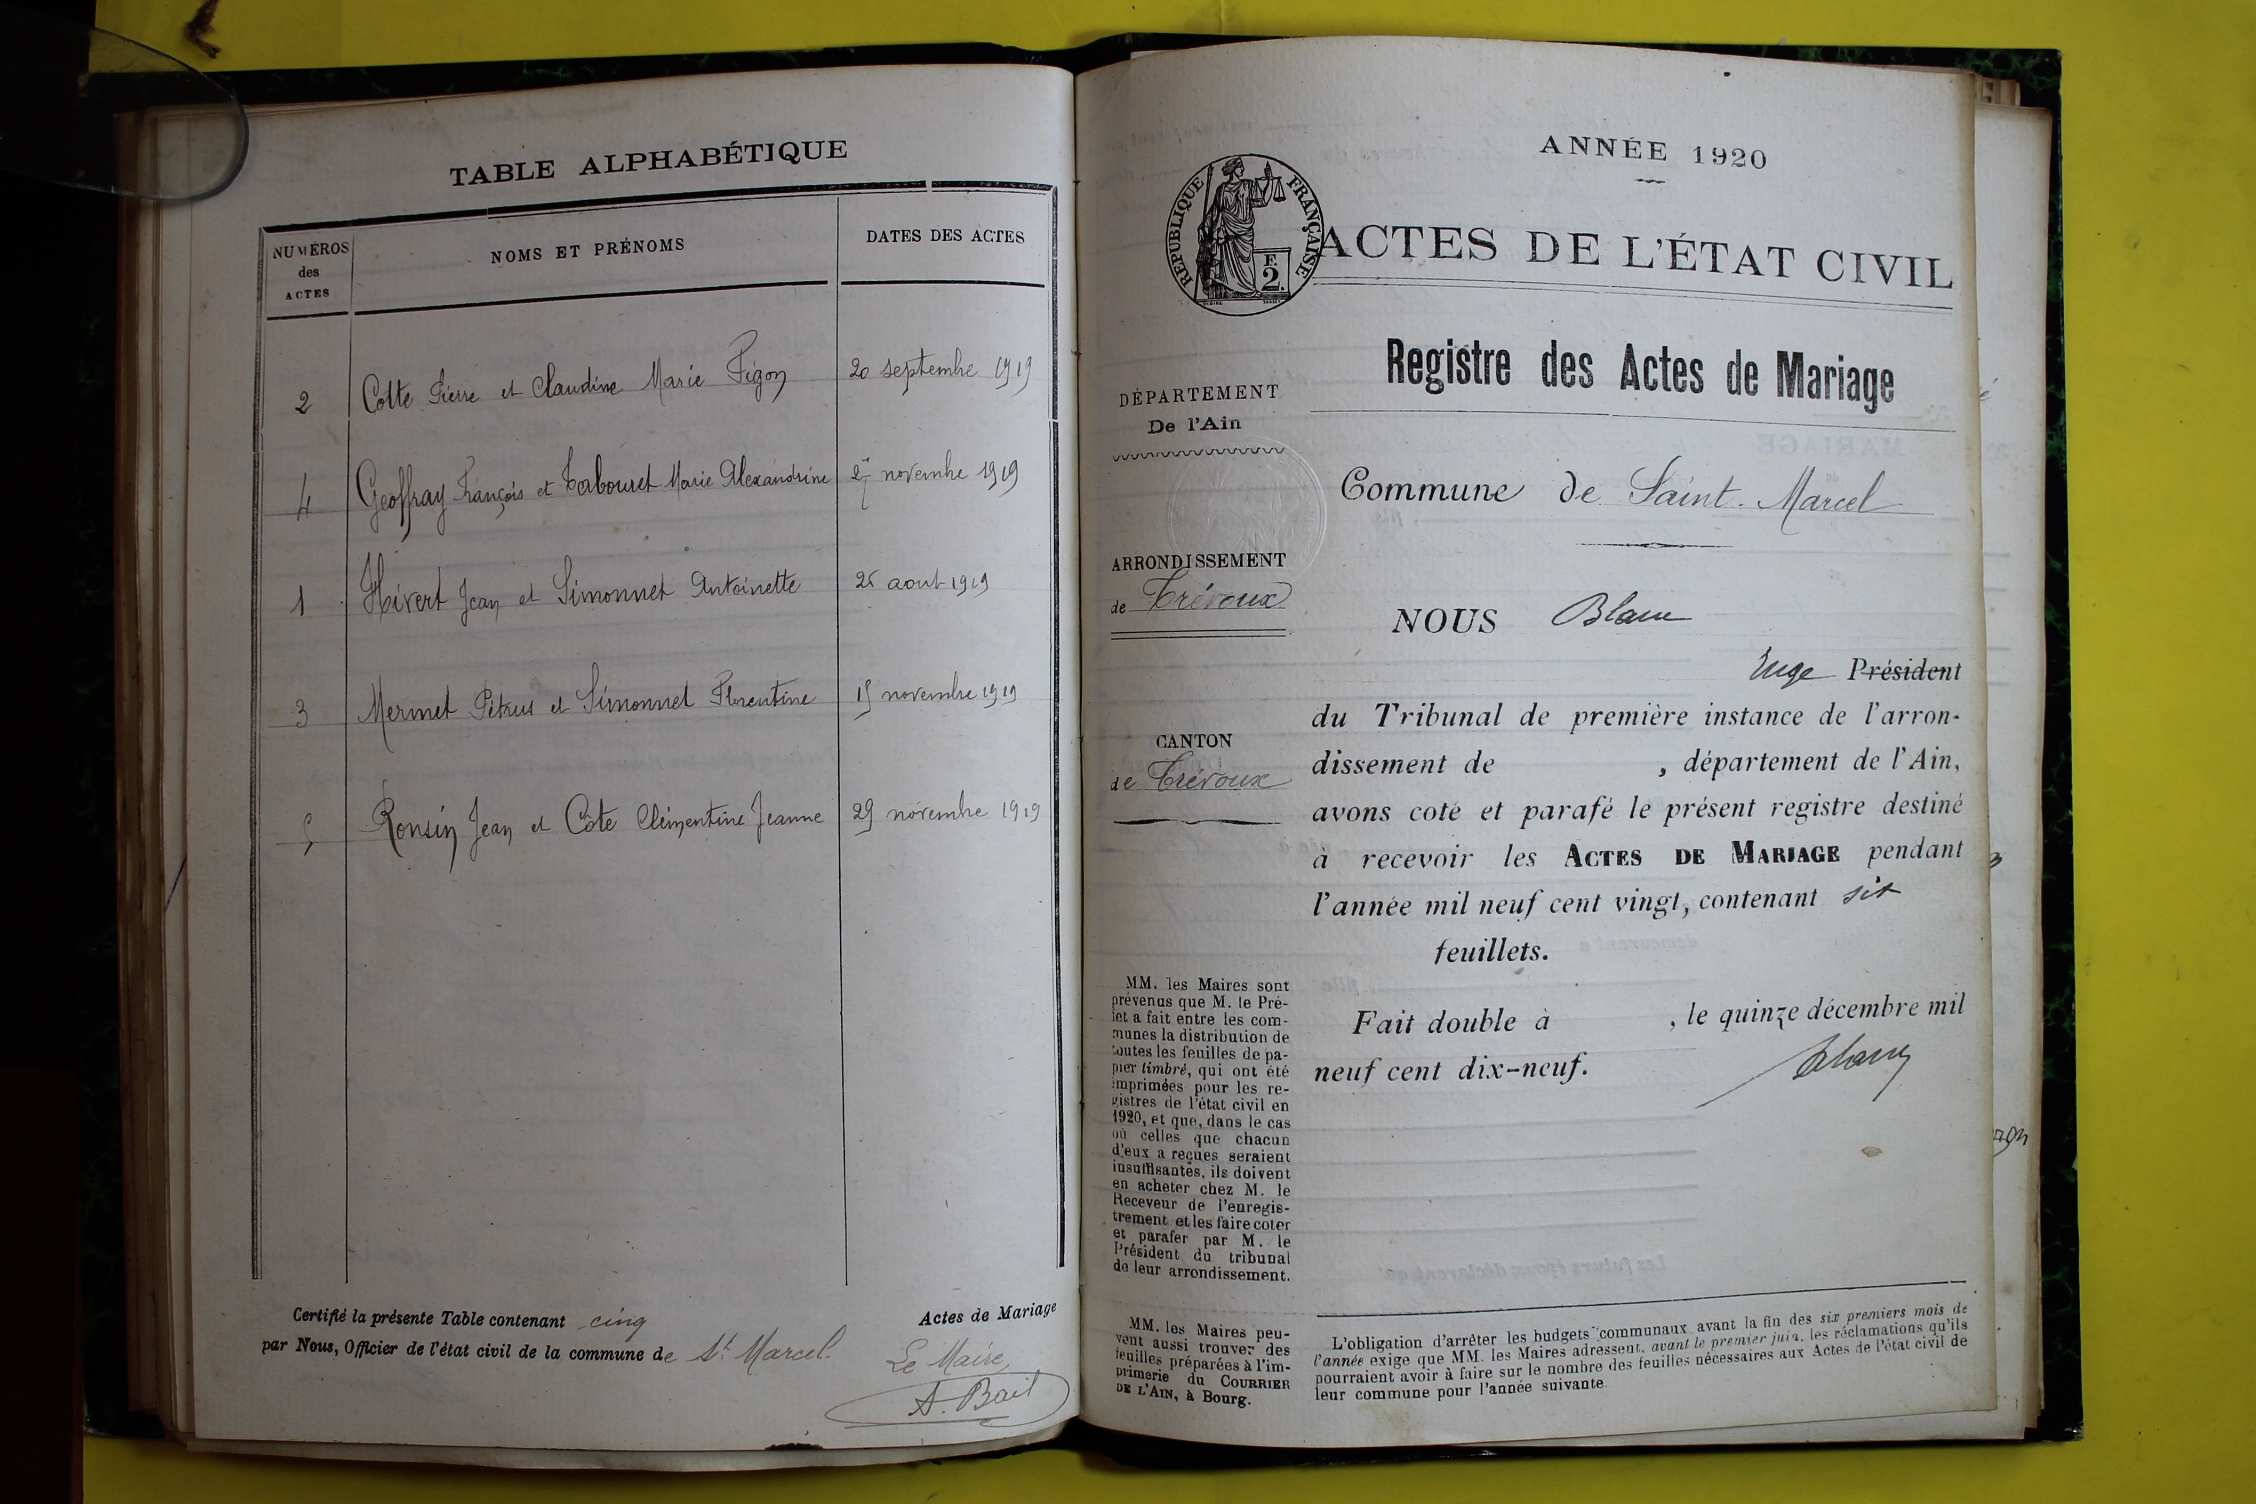 TABLE ALPHABÉTIQUE
NUMÉROS
des
ACTES
NOMS ET PRÉNOMS
DATES DES ACTES
2 Cotte Pierre et Claudine Marie Pigon 20 septembre 1919
4 Geoffray François et Tabouret Marie Alexandrine novembre 1919
1 Hivert Jean et Simonnet Antoinette aout 1919
3 Mermet Pétrus et Simonnet Florentine 15 novembre 1919
5 Ronsin Jean et Côte Clémentine Jeanne 29 novembre 1919
Certifié la présente Table contenant cinq Actes de Mariage
par Nous, Officier de l'état civil de la commune de St Marcel.
Le Maire,
A. Bail
ANNÉE 1920
RÉPUBLIQUE FRANÇAISE
F.
2.
ACTES DE L'ÉTAT CIVIL
Registre des Actes de Mariage
DÉPARTEMENT
De l'Ain
Commune de Saint-Marcel
ARRONDISSEMENT
de Trévoux
CANTON
de Trévoux
NOUS Blanc
Juge Président
du Tribunal de première instance de l'arron-
dissement de , département de l'Ain,
avons coté et parafé le présent registre destiné
à recevoir les ACTES DE MARIAGE pendant
l'année mil neuf cent vingt, contenant six
feuillets.
Fait double à , le quinze décembre mil
neuf cent dix-neuf.
Blanc
MM. les Maires sont
prévenus que M. le Pré-
fet a fait entre les com-
munes la distribution de
toutes les feuilles de pa-
pier timbré, qui ont été
imprimées pour les re-
gistres de l'état civil en
1920, et que, dans le cas
où celles que chacun
d'eux a reçues seraient
insuffisantes, ils doivent
en acheter chez M. le
Receveur de l'enregis-
trement et les faire coter
et parafer par M. le
Président du tribunal
de leur arrondissement.
MM. les Maires peu-
vent aussi trouver des
feuilles préparées à l'im-
primerie du COURRIER
DE L'AIN, à Bourg.
L'obligation d'arrêter les budgets communaux avant la fin des six premiers mois de
l'année exige que MM. les Maires adressent, avant le premier juin, les réclamations qu'ils
pourraient avoir à faire sur le nombre des feuilles nécessaires aux Actes de l'état civil de
leur commune pour l'année suivante.